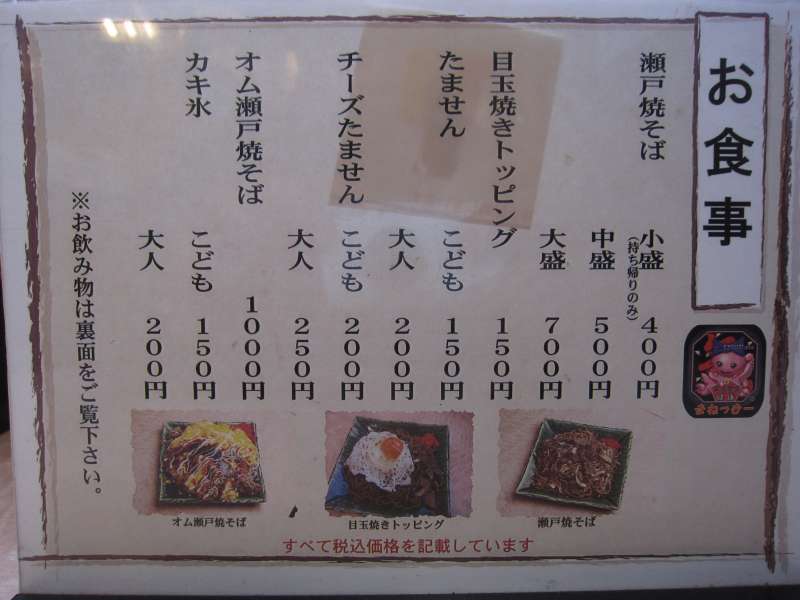 お食事
瀬戸焼そば 小盛 (持ち帰りのみ) 400円
中盛 500円
大盛 700円
目玉焼きトッピング 150円
たません こども 150円
大人 200円
チーズたません こども 200円
大人 250円
オム瀬戸焼そば 1000円
カキ氷 こども 150円
大人 200円
※お飲み物は裏面をご覧下さい。
オム瀬戸焼そば
目玉焼きトッピング
瀬戸焼そば
すべて税込価格を記載しています